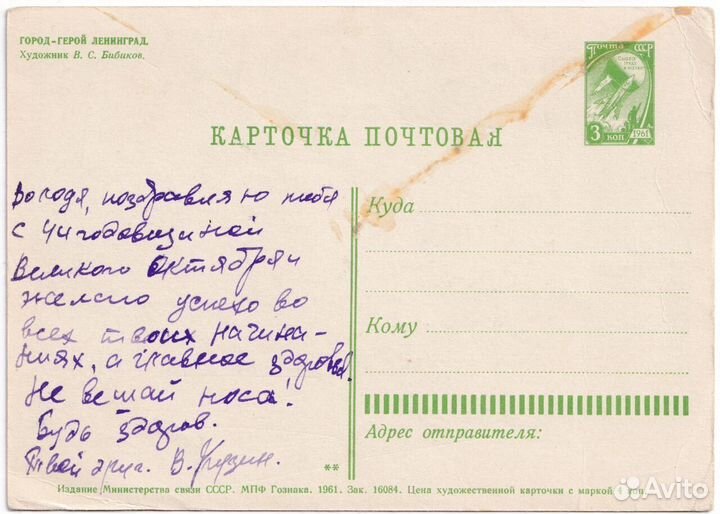 ГОРОД-ГЕРОЙ ЛЕНИНГРАД.
Художник В. С. Бибиков.
Почта СССР
3 коп
1961
КАРТОЧКА ПОЧТОВАЯ
Володя, поздравляю тебя
с 44 годовщиной
Великого Октября и
желаю успехов во
всех твоих начина-
ниях, а главное здоровья.
Не вешай носа!
Будь здоров.
Твой друг. В.
Куда
Кому
Адрес отправителя:
**
Издание Министерства связи СССР. МПФ Гознака. 1961. Зак. 16084. Цена художественной карточки с маркой 4 коп.
Avito